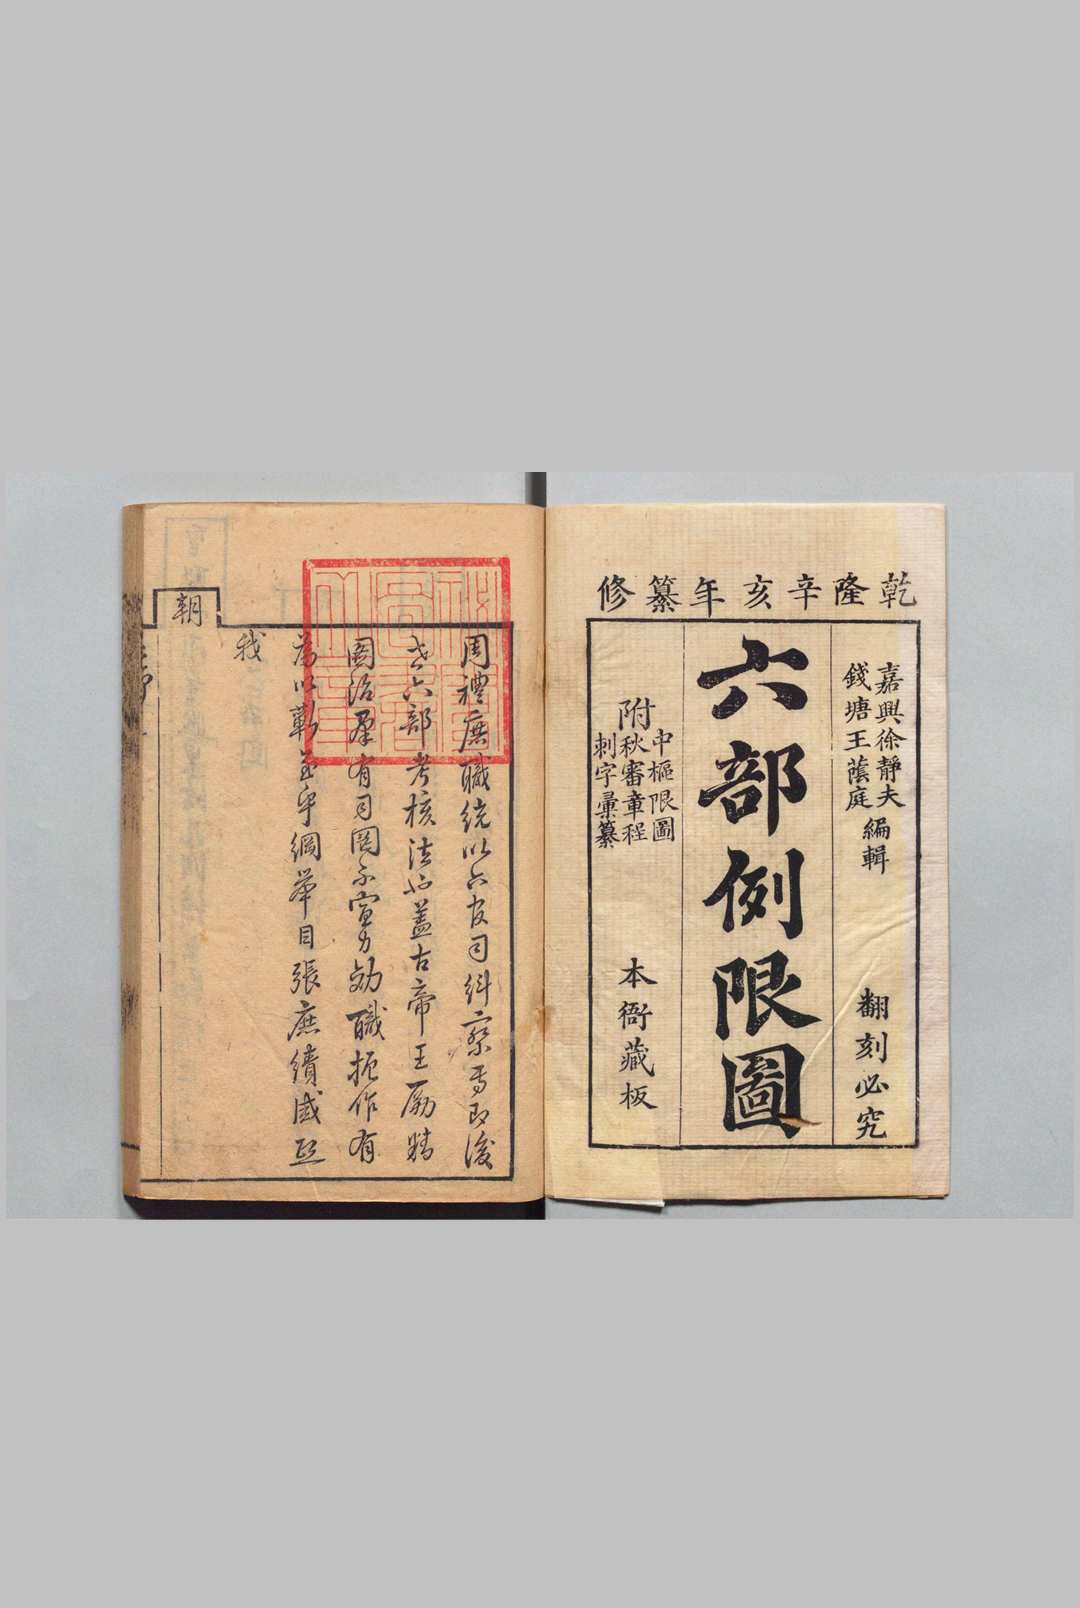 乾隆辛亥年纂修
嘉興徐靜夫
錢塘王蔭庭
編輯
翻刻必究
六部例限圖
附
中樞限圖
秋審章程
刺字彙纂
本衙藏板
周禮庶職統以六官司糾察焉即後
世六部考核法也蓋古帝王勵精
圖治羣有司罔不宣力効職振作有
為以勤至平綱舉目張庶績咸熙
我
朝